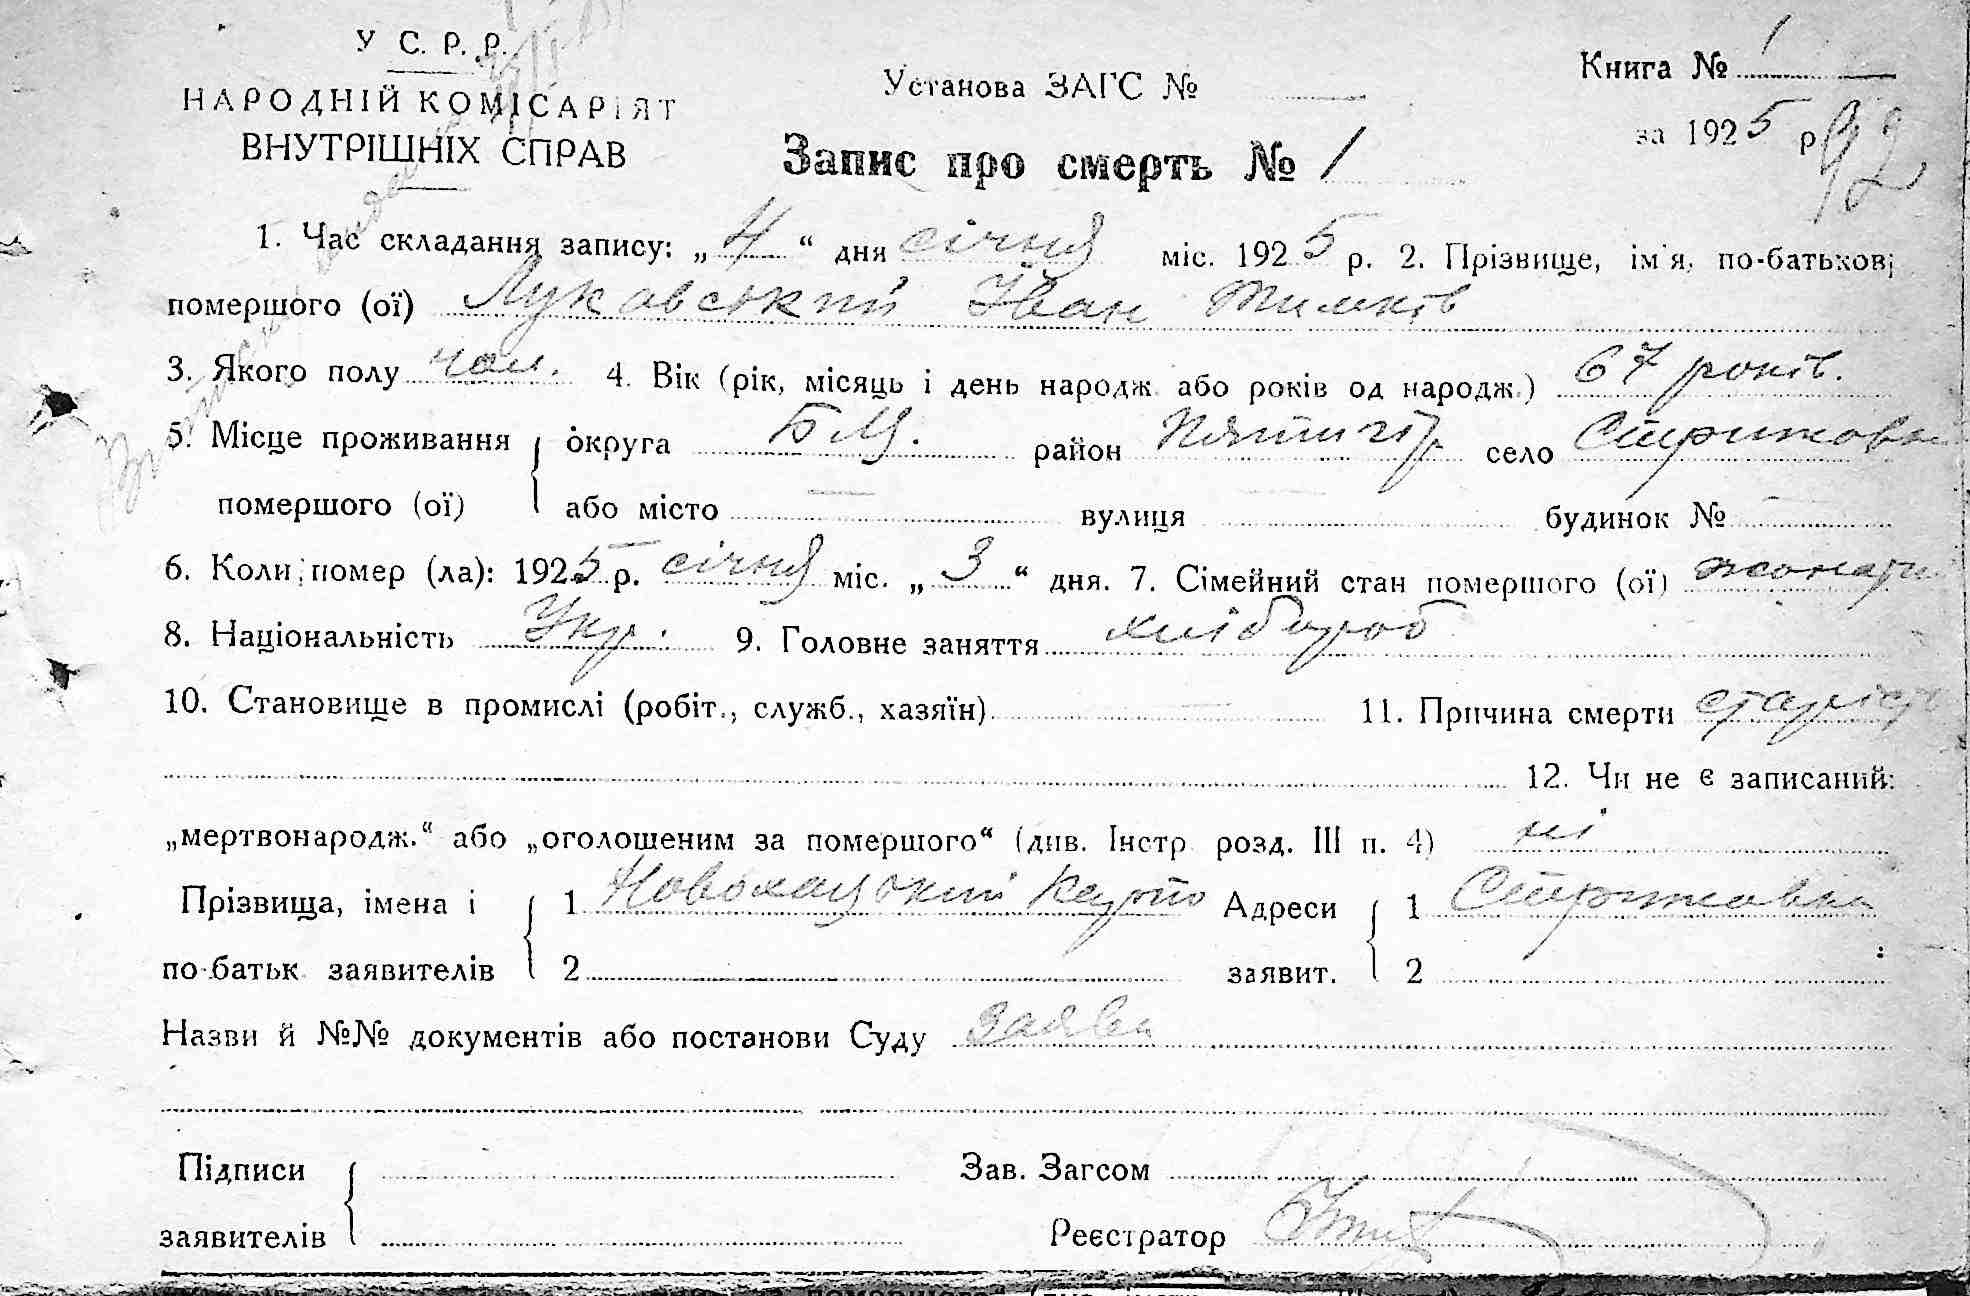 У С. Р. Р.
НАРОДНІЙ КОМІСАРІЯТ
ВНУТРІШНІХ СПРАВ
Установа ЗАГС №
Запис про смерть № 1
Книга № 1
за 1925 р
92
1. Час складання запису: „4“ дня січня міс. 1925 р. 2. Прізвище, ім'я, по-батькові
помершого (ої) Луковський Іван Тимків
3. Якого полу чол. 4. Вік (рік, місяць і день народж. або років од народж.) 67 років.
5. Місце проживання помершого (ої) { округа Б.Ц. район Пятигір село Стрижовка
або місто — вулиця — будинок № —
6. Коли помер (ла): 1925 р. січня міс. „3“ дня. 7. Сімейний стан помершого (ої) жонатий
8. Національність Укр. 9. Головне заняття хлібороб
10. Становище в промислі (робіт., служб., хазяїн) — 11. Причина смерти старість
12. Чи не є записаний:
„мертвонародж.“ або „оголошеним за помершого“ (див. Інстр. розд. III п. 4) ні
Прізвища, імена і по-батьк. заявителів { 1 Карпо Адреси заявит. { 1 Стрижовка
2 2
Назви й №№ документів або постанови Суду заява
Підписи заявителів {
Зав. Загсом
Реєстратор